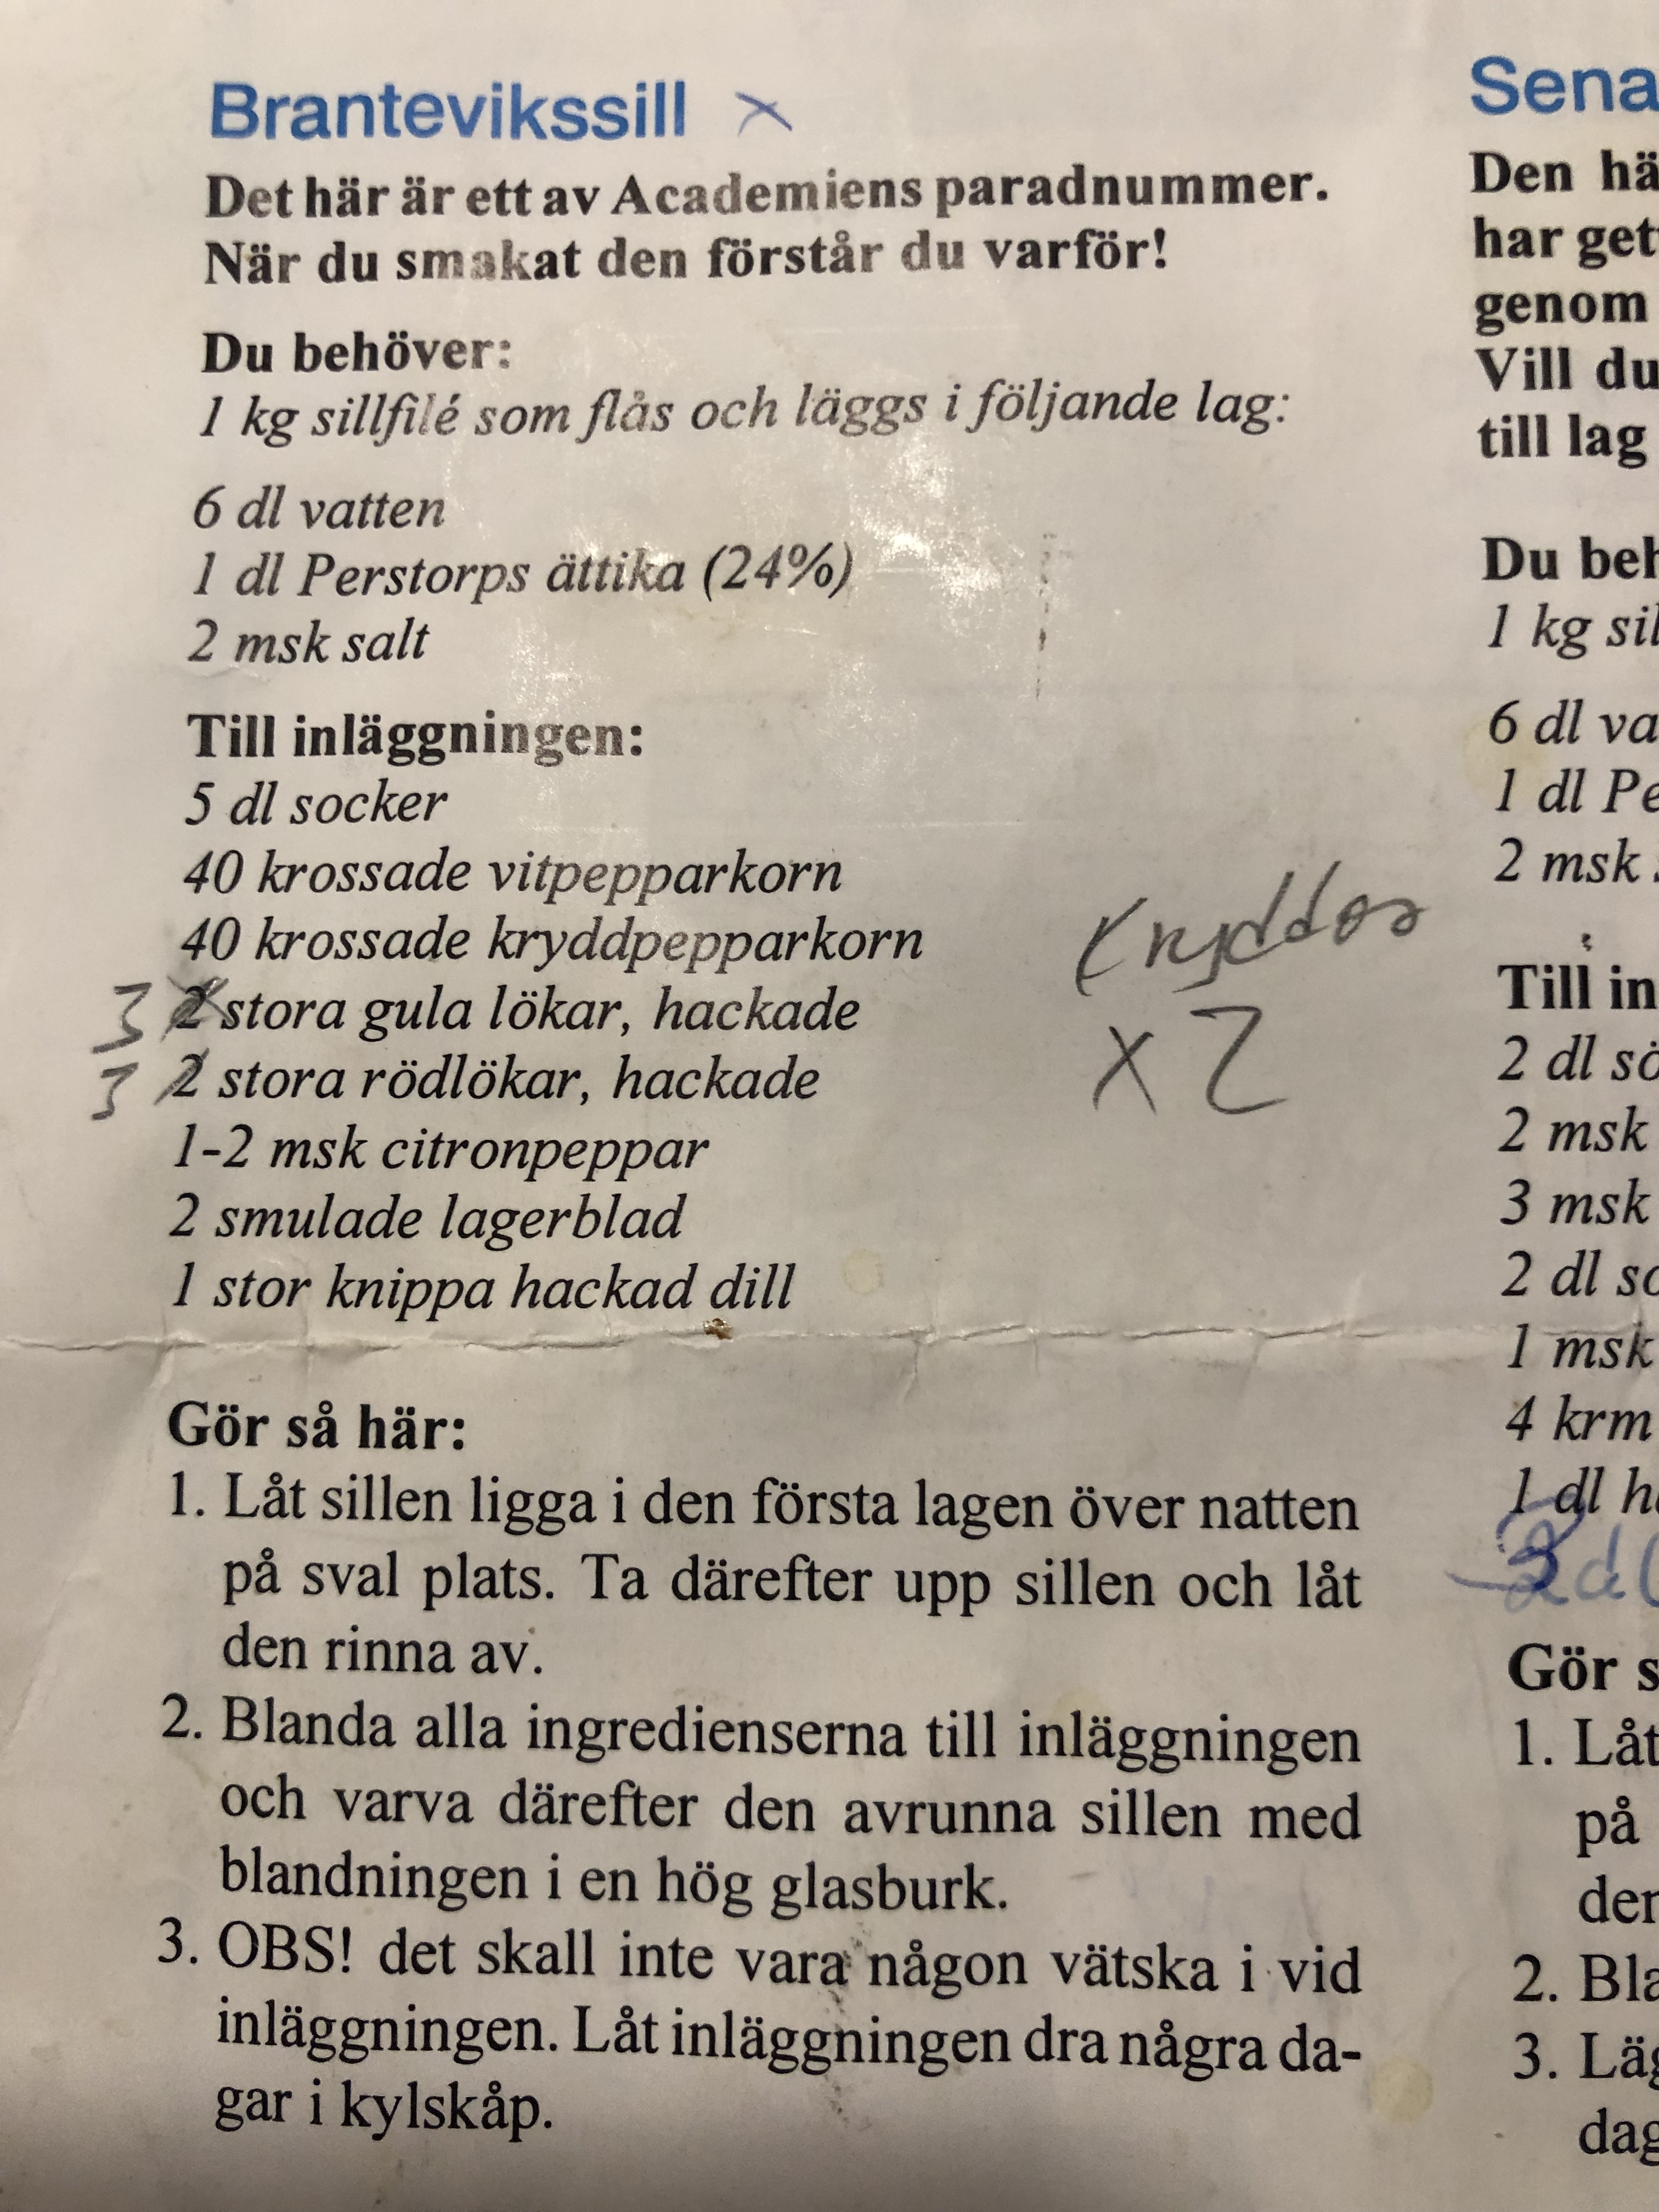 Brantevikssill x
Det här är ett av Academiens paradnummer.
När du smakat den förstår du varför!
Du behöver:
1 kg sillfilé som flås och läggs i följande lag:
6 dl vatten
1 dl Perstorps ättika (24%)
2 msk salt
Till inläggningen:
5 dl socker
40 krossade vitpepparkorn
40 krossade kryddpepparkorn
3 2 stora gula lökar, hackade
3 2 stora rödlökar, hackade
1-2 msk citronpeppar
2 smulade lagerblad
1 stor knippa hackad dill
Kryddor
x 2
Gör så här:
1. Låt sillen ligga i den första lagen över natten
på sval plats. Ta därefter upp sillen och låt
den rinna av.
2. Blanda alla ingredienserna till inläggningen
och varva därefter den avrunna sillen med
blandningen i en hög glasburk.
3. OBS! det skall inte vara någon vätska i vid
inläggningen. Låt inläggningen dra några da-
gar i kylskåp.
Sena
Den hä
har get
genom
Vill du
till lag
Du beh
1 kg sil
6 dl va
1 dl Pe
2 msk
Till in
2 dl sö
2 msk
3 msk
2 dl so
1 msk
4 krm
1 dl ha
dl
Gör s
1. Låt
på
den
2. Bla
3. Läg
dag